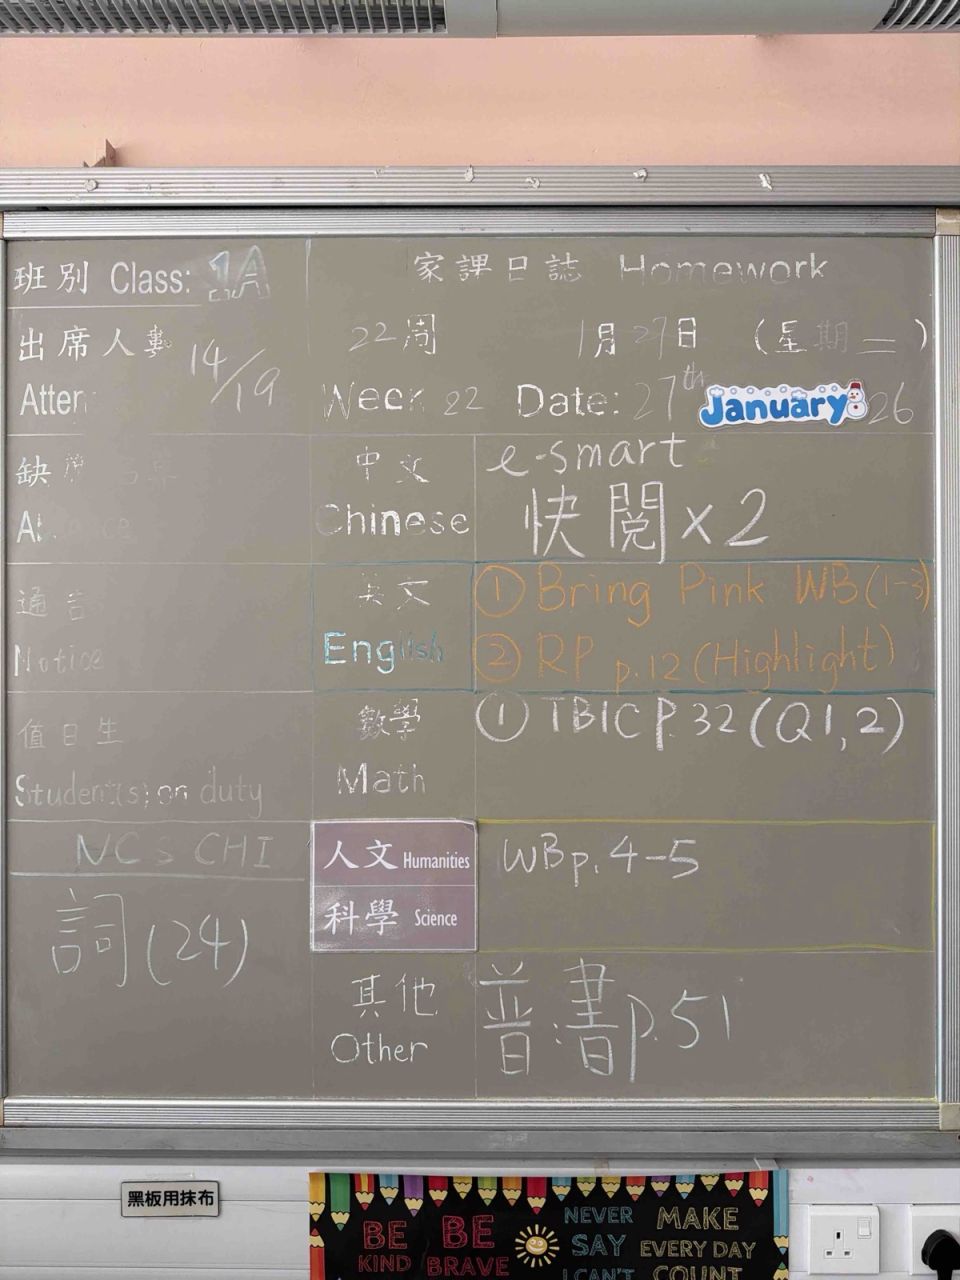 班別 Class: 1A
家課日誌 Homework
出席人數 14/19
Atten
22周 1月27日 (星期二)
Week 22 Date: 27th January 26
缺
中文
Chinese
e-smart
快閱 x2
通告
Notice
英文
English
① Bring Pink WB (1-3)
② RP p.12 (Highlight)
值日生
Student(s) on duty
數學
Math
① TBIC P.32 (Q1,2)
NCS CHI
詞(24)
人文 Humanities
科學 Science
WB p.4-5
其他
Other
普:書p.51
黑板用抹布
BE KIND
BE BRAVE
NEVER SAY I CAN'T
MAKE EVERY DAY COUNT